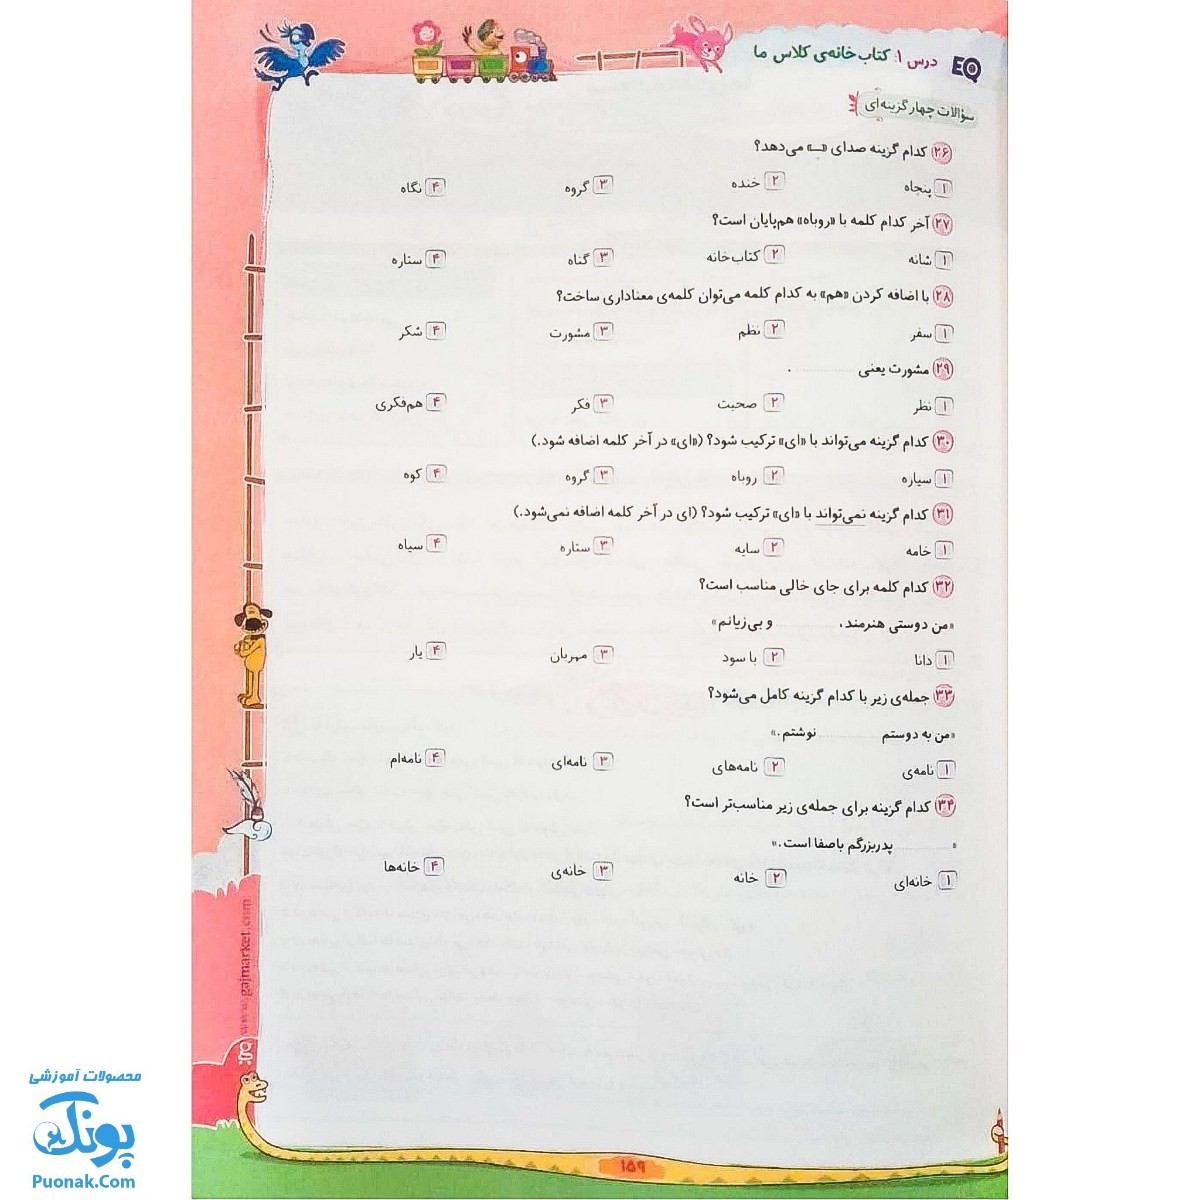 EQ درس ۱: کتاب‌خانه‌ی کلاس ما
سؤالات چهارگزینه‌ای
۲۶ کدام گزینه صدای «ـِـ» می‌دهد؟
۱ پنجاه ۲ خنده ۳ گروه ۴ نگاه
۲۷ آخر کدام کلمه با «روباه» هم‌پایان است؟
۱ شانه ۲ کتاب‌خانه ۳ گناه ۴ ستاره
۲۸ با اضافه کردن «هم» به کدام کلمه می‌توان کلمه‌ی معناداری ساخت؟
۱ سفر ۲ نظم ۳ مشورت ۴ شکر
۲۹ مشورت یعنی ............... .
۱ نظر ۲ صحبت ۳ فکر ۴ هم‌فکری
۳۰ کدام گزینه می‌تواند با «ای» ترکیب شود؟ («ای» در آخر کلمه اضافه شود.)
۱ سیاره ۲ روباه ۳ گروه ۴ کوه
۳۱ کدام گزینه نمی‌تواند با «ای» ترکیب شود؟ (ای در آخر کلمه اضافه نمی‌شود.)
۱ خامه ۲ سایه ۳ ستاره ۴ سیاه
۳۲ کدام کلمه برای جای خالی مناسب است؟
«من دوستی هنرمند، ............... و بی‌زیانم»
۱ دانا ۲ با سود ۳ مهربان ۴ یار
۳۳ جمله‌ی زیر با کدام گزینه کامل می‌شود؟
«من به دوستم ............... نوشتم.»
۱ نامه‌ی ۲ نامه‌های ۳ نامه‌ای ۴ نامه‌ام
۳۴ کدام گزینه برای جمله‌ی زیر مناسب‌تر است؟
«............... پدربزرگم باصفا است.»
۱ خانه‌ای ۲ خانه ۳ خانه‌ی ۴ خانه‌ها
www.gajmarket.com
۱۵۹
محصولات آموزشی
پونک
Puonak.Com